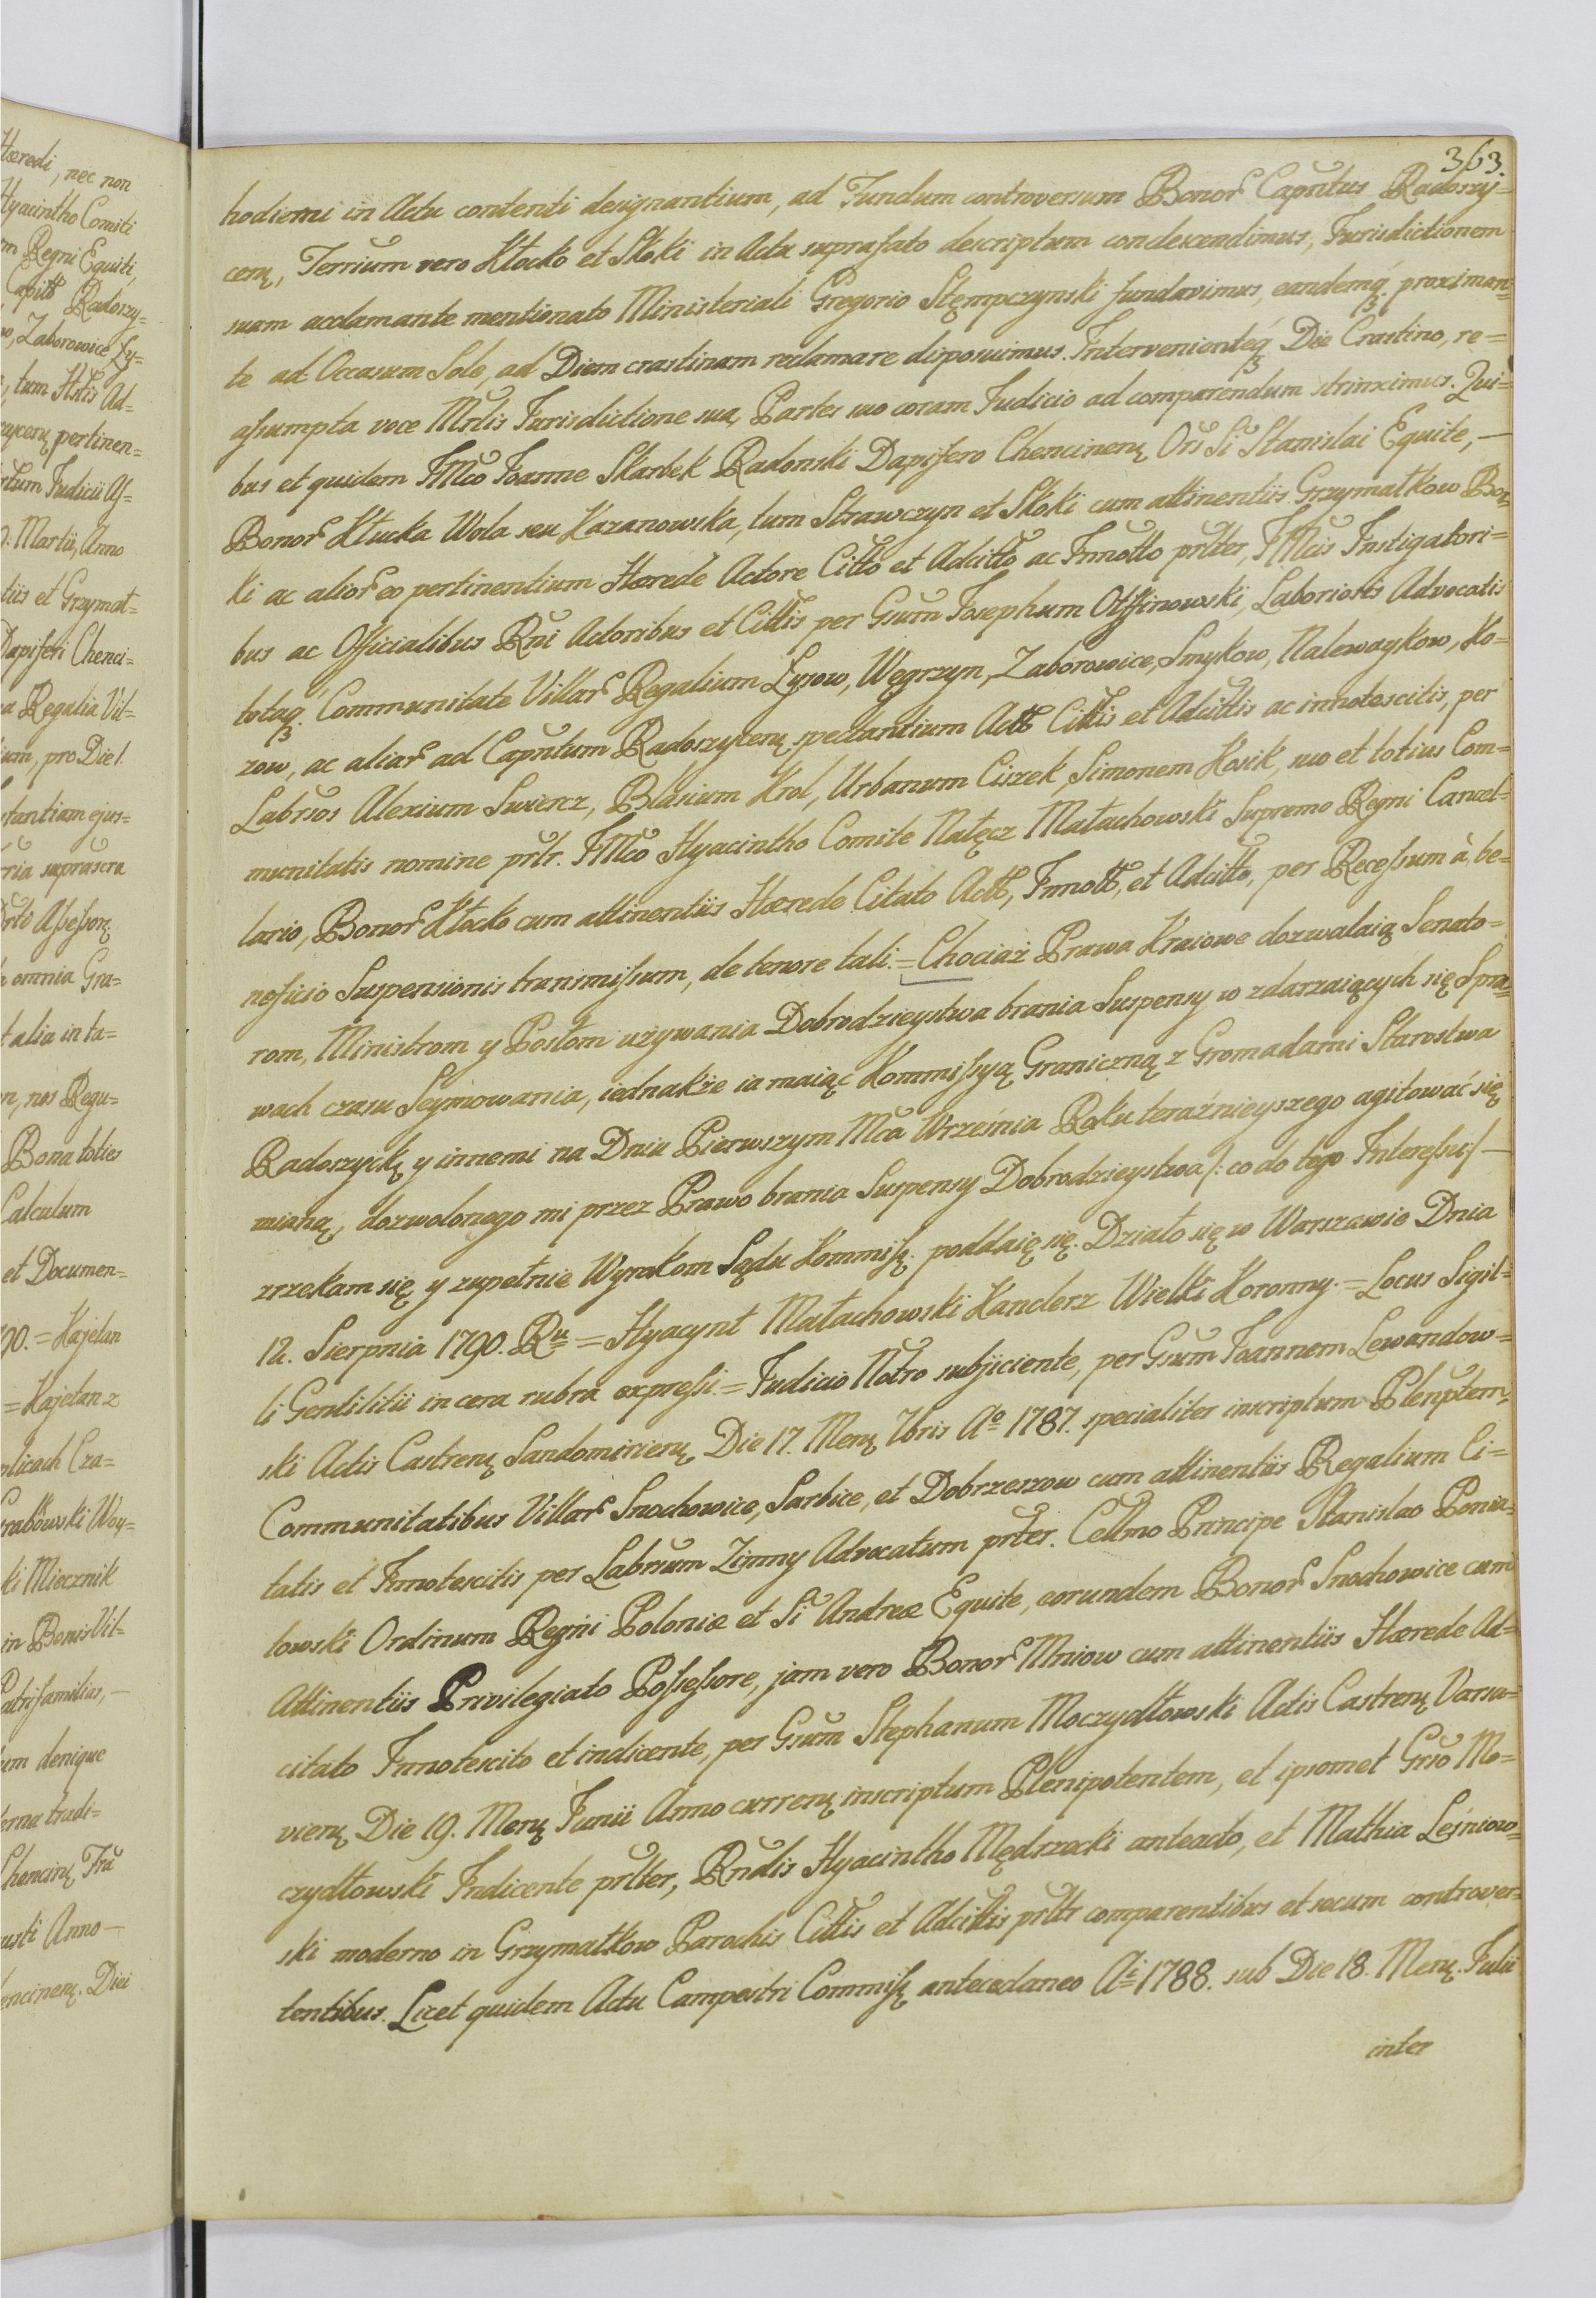 Hæredi, nec non
Hyacintho Comiti
m Regni Equiti,
Capitt Radoszy=
wo, Zaborowice Ły=
, tum Ad=
zycenſ pertinen=
Judicii Aſ=
. Martii, Anno
tiis et Grzymał=
Dapiferi Chenci=
a Regalia Vil=
um, pro Die 1.
stantiam ejus=
ria suprascra
Aſseſsorſ
omnia Gra=
t alia in ta=
n, nos Regu=
Bona toties
Calculum
et Documen=
90. = Kajetan
= Kajetan z
plicach Cza=
rabowski Woy=
ki Miecznik
in Bonis Vil=
Patrisfamilias, —
um denique
erna tradi=
Chencinſ Fra
usti Anno —
encinenſ. Diei
363.
hodierni in Actu contenti designantium, ad Fundum controversum Bonor̃ Capñtus Radoszy=
cenſ, Terrium vero Kłocko et Skoki in Actu suprafato descriptum condescendimus, Jurisdictionem
suam acclamante mentionato Ministeriali Gregorio Stęmpczynski fundavimus, eandemq́ȝ proximan=
te ad Occasum Sole, ad Diem crastinam reclamare disposuimus. Intervenienteq́ȝ Die Crastino, re=
aſsumpta voce Mñlis Jurisdictione sua, Partes suo coram Judicio ad comparendum strinximus. Qui=
bus et quidem JMco Joanne Skarbek Radonski Dapifero Chencinenſ Ors Sĩ Stanislai Equite, —
Bonor̃ Kłucka Wola seu Kazanowska, tum Strawczyn et Skoki cum attinentiis Grzymałkow Bor=
ki ac alior̃ eo pertinentium Hærede Actore Citto et Adcitto ac Innotto prlter, JMcis Instigatori=
bus ac Officialibus Rñi Actoribus et Cittis per Gsum Josephum Olſzinowski, Laboriosis Advocatis
totaq́ȝ Communitate Villar̃ Regalium Łysow, Węgrzyn, Zaborowice, Smykow, Nalewaykow, Ko=
zow, ac aliar̃ ad Capñtum Radoszycenſ spectantium Actt Cittis et Adcittis ac innotescitis, per
Labrsos Alexium Suwercz, Blasium Krol, Urbanum Ciszek, Simonem Kosik, suo et totius Com=
munitatis nomine prltr. JMco Hyacintho Comite Nałęcz Małachowski Supremo Regni Cancel=
lario, Bonor̃ Kłocko cum attinentiis Hærede Citato Actt, Innott, et Adcitto, per Receſsum à be=
neficio Suspensionis transmiſsum, de tenore tali. = Chociaż Prawa Kraiowe dozwalaią Senato=
rom, Ministrom y Posłom używania Dobrodzieystwa brania Suspensy w zdarzaiących się Spra=
wach czasu Seymowania, iednakże ia maiąc Kommiſsyą Graniczną z Gromadami Starostwa
Radoszyckſ y innemi na Dniu Pierwszym Mca Września Roku teraźnieyszego agitować się
mianą, dozwolonego mi przez Prawo brania Suspensy Dobrodzieystwa /: co do tego Intereſsu :/ —
zrzekam się y zupełnie Wyrokom Sądu Kommiſſ poddaię się. Działo się w Warszawie Dnia
12. Sierpnia 1790. Ru = Hyacynt Małachowski Kanclerz Wielki Koronny. = Locus Sigil=
li Gentilitii in cera rubra expreſsi. = Judicio Notro subjiciente, per Gsum Joannem Lewandow=
ski Actis Castrenſ Sandomirienſ Die 17. Menſ 7bris Ao 1787. specialiter inscriptum Plenptem,
Communitatibus Villar̃ Snochowice, Sarbice, et Dobrzeszow cum attinentiis Regalium Ci=
tatis et Innotescitis per Labrsum Zimny Advocatum prlter. Cellmo Principe Stanislao Ponia=
towski Ordinum Regni Poloniæ et Sĩ Andreæ Equite, eorundem Bonor̃ Snochowice cum
Attinentiis Privilegiato Poſseſsore, jam vero Bonor̃ Mniow cum attinentiis Hærede Ad=
citato Innotescito et indicente, per Gsum Stephanum Moczydłowski Actis Castrenſ Varsa=
vienſ Die 19. Menſ Junii Anno currenſ inscriptum Plenipotentem, et ipsomet Gsso Mo=
czydłowski Indicente prlter, Rñdis Hyacintho Mędrzecki anteacto, et Mathia Leśniow=
ski moderno in Grzymałkow Parochis Cittis et Adcittis prltr comparentibus et secum controver=
tentibus. Licet quidem Actu Campestri Commiſſ antecedaneo Ai 1788. sub Die 18. Menſ. Julii
inter